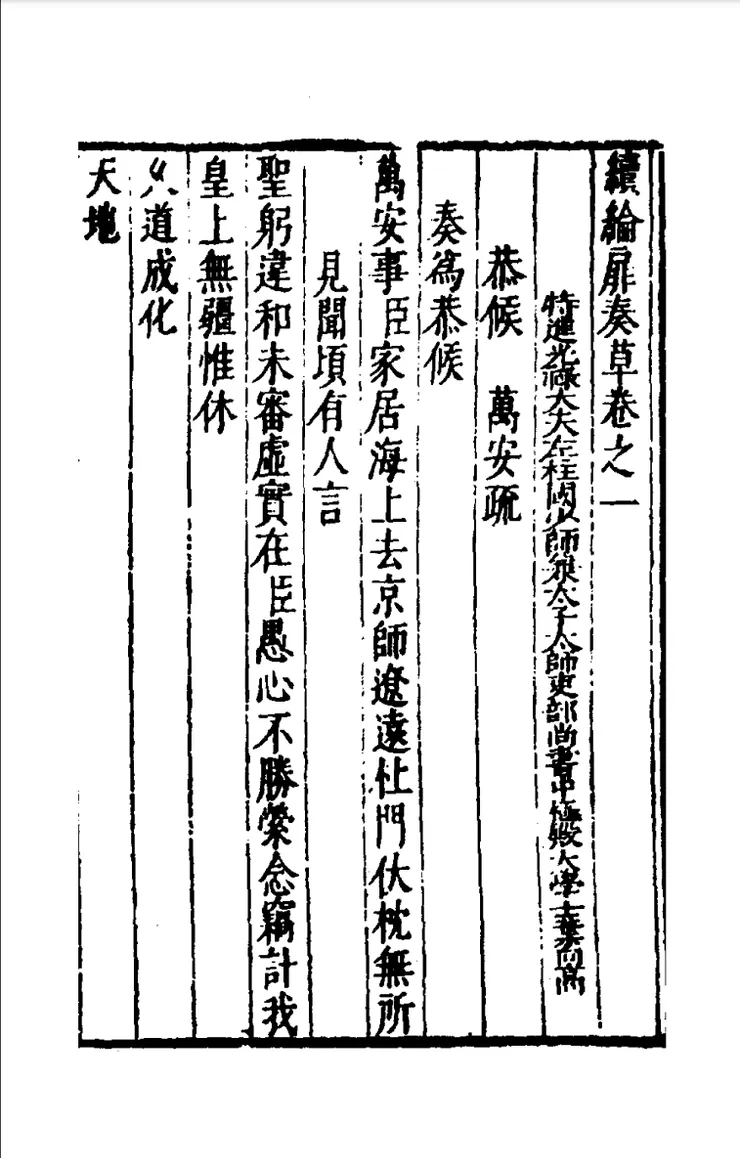 續綸扉奏草卷之一
特進光祿大夫左柱國少師兼太子太師吏部尚書中極殿大學士葉向高
恭候　萬安疏
奏爲恭候
萬安事臣家居海上去京師遼遠杜門伏枕無所
見聞頃有人言
聖躬違和未審虛實在臣愚心不勝縈念竊計我
皇上無疆惟休
久道成化
天地